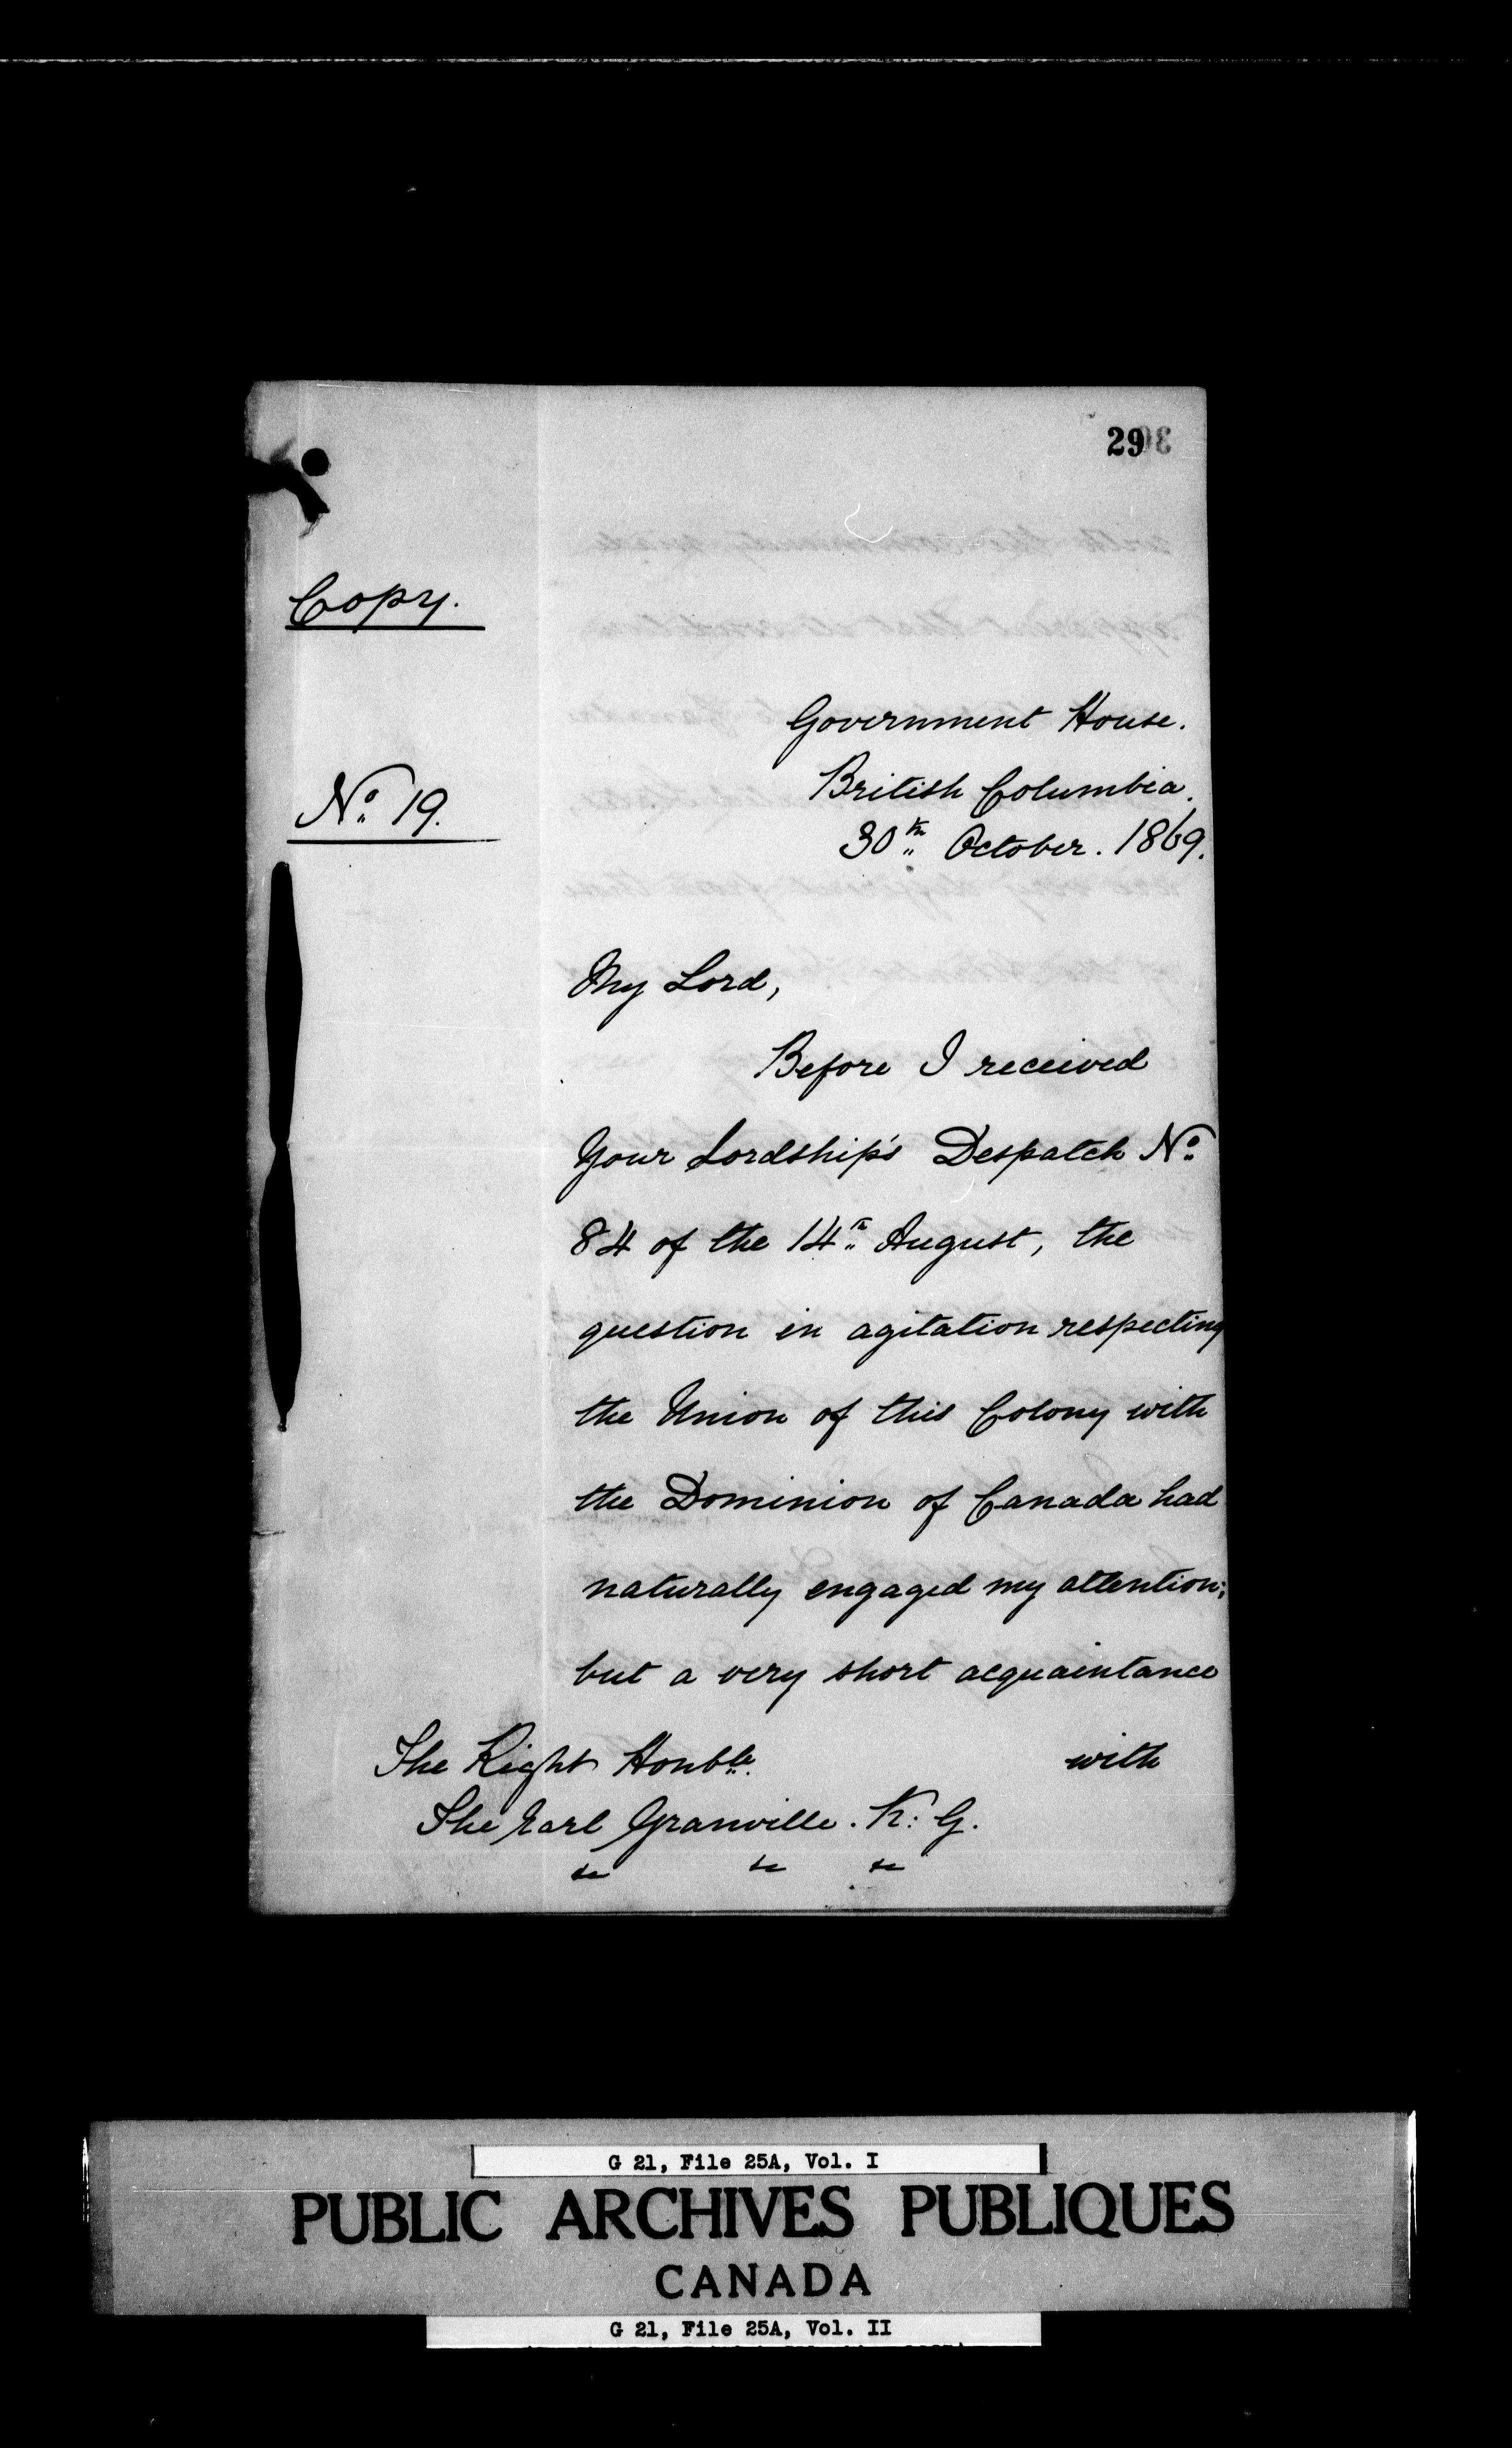 29
Copy.
Government House.
No. 19.
British Columbia.
30th October. 1869.
My Lord,
Before I received
Your Lordship's Despatch No.
84 of the 14th August, the
question in agitation respecting
the Union of this Colony with
the Dominion of Canada had
naturally engaged my attention;
but a very short acquaintance
with
The Right Honble.
The Earl Granville. K: G.
&c &c &c
G 21, File 25A, Vol. I
PUBLIC ARCHIVES PUBLIQUES
CANADA
G 21, File 25A, Vol. II